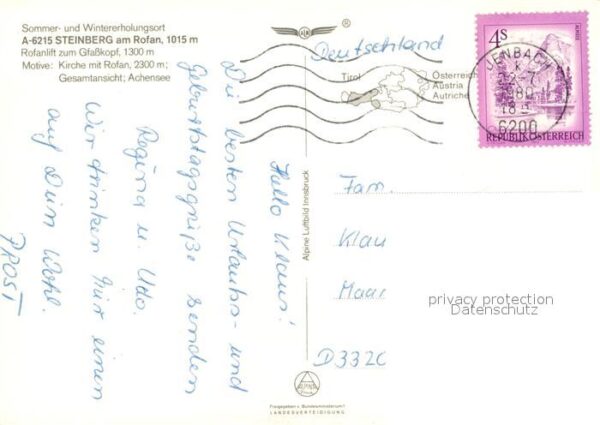 Sommer- und Wintererholungsort
A-6215 STEINBERG am Rofan, 1015 m
Rofanlift zum Gfaßkopf, 1300 m
Motive: Kirche mit Rofan, 2300 m;
Gesamtansicht; Achensee
Hello Klaus!
Die besten Urlaubs- und
Geburtstagsgrüße senden
Regina u. Udo.
Wir trinken für einen
auf Dein Wohl.
PROST
Alpine Luftbild Innsbruck
ALPINE
Freigegeben v. Bundesministerium f.
LANDESVERTEIDIGUNG
®
Deutschland
Tirol
Österreich
Austria
Autriche
4S
JENBACH
6200
REPUBLIK ÖSTERREICH
Fam.
Klau
Maar
D332C
privacy protection
Datenschutz